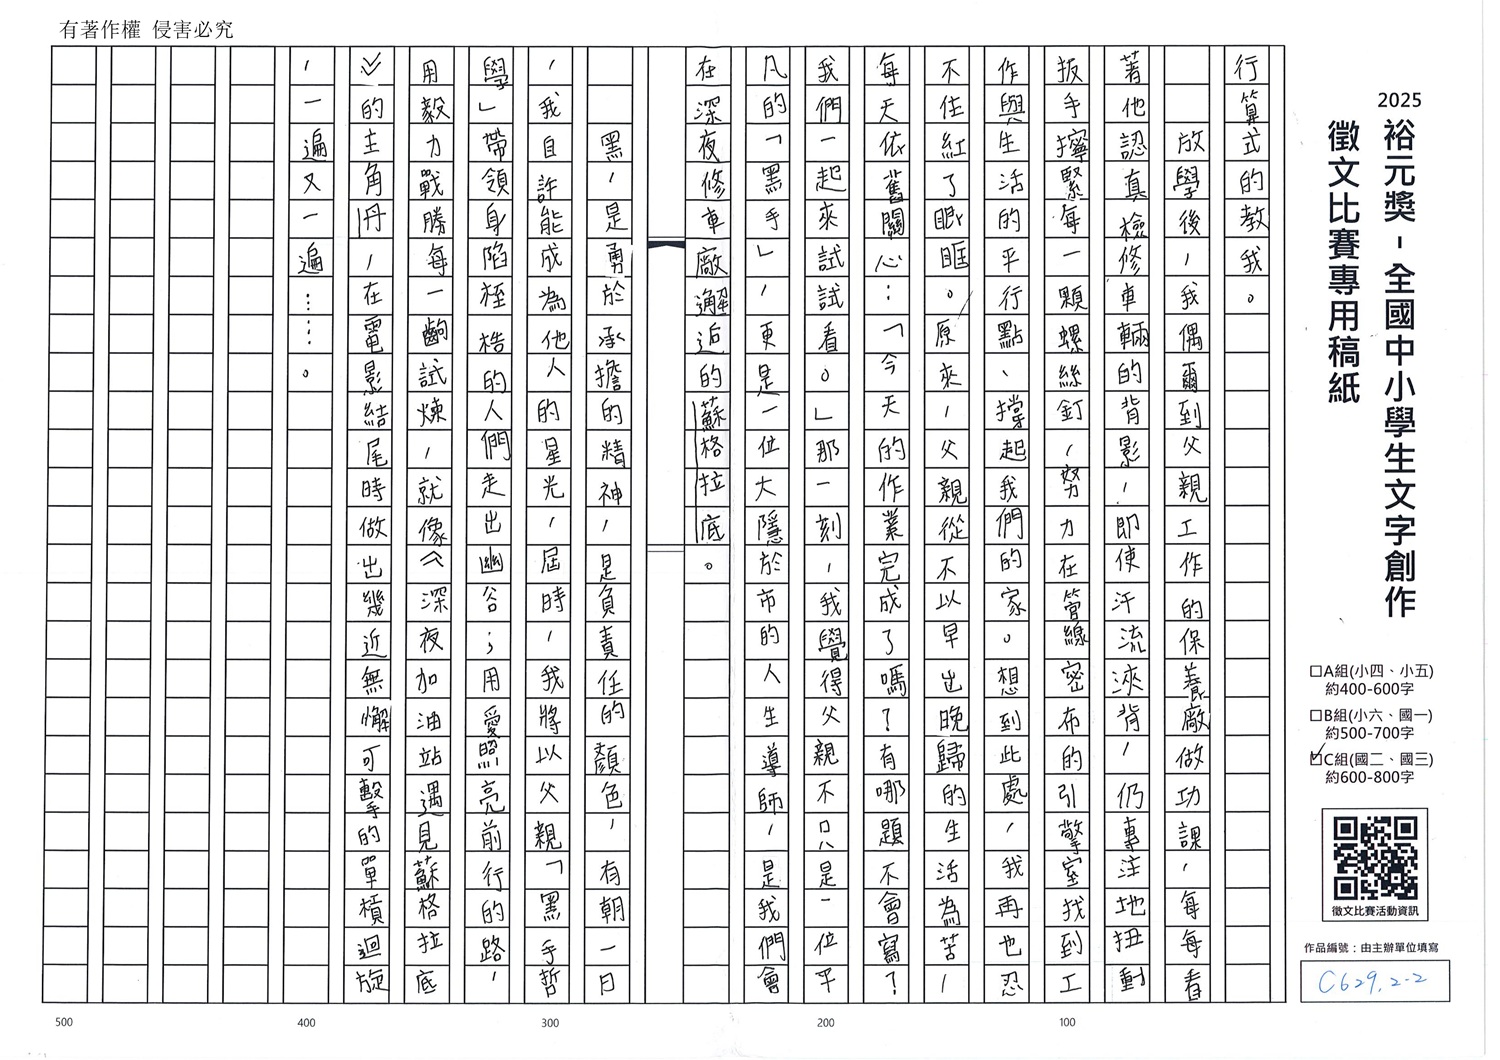 有著作權 侵害必究
2025
裕元獎-全國中小學生文字創作
徵文比賽專用稿紙
□A組(小四、小五)
約400-600字
□B組(小六、國一)
約500-700字
☑C組(國二、國三)
約600-800字
徵文比賽活動資訊
作品編號：由主辦單位填寫
C629.2-2
行算式的教我。
放學後，我偶爾到父親工作的保養廠做功課，每每看
著他認真檢修車輛的背影，即使汗流浹背，仍專注地扭動
扳手擰緊每一顆螺絲釘，努力在管線密布的引擎室找到工
作與生活的平行點、撐起我們的家。想到此處，我再也忍
不住紅了眼眶。原來，父親從不以早出晚歸的生活為苦，
每天依舊關心：「今天的作業完成了嗎？有哪題不會寫？
我們一起來試試看。」那一刻，我覺得父親不只是一位平
凡的「黑手」，更是一位大隱於市的人生導師，是我們會
在深夜修車廠邂逅的蘇格拉底。
黑，是勇於承擔的精神，是負責任的顏色，有朝一日
，我自許能成為他人的星光，屆時，我將以父親「黑手哲
學」帶領身陷桎梏的人們走出幽谷；用愛照亮前行的路，
用毅力戰勝每一齣試煉，就像《深夜加油站遇見蘇格拉底
》的主角丹，在電影結尾時做出幾近無懈可擊的單槓迴旋
，一遍又一遍……。
500
400
300
200
100